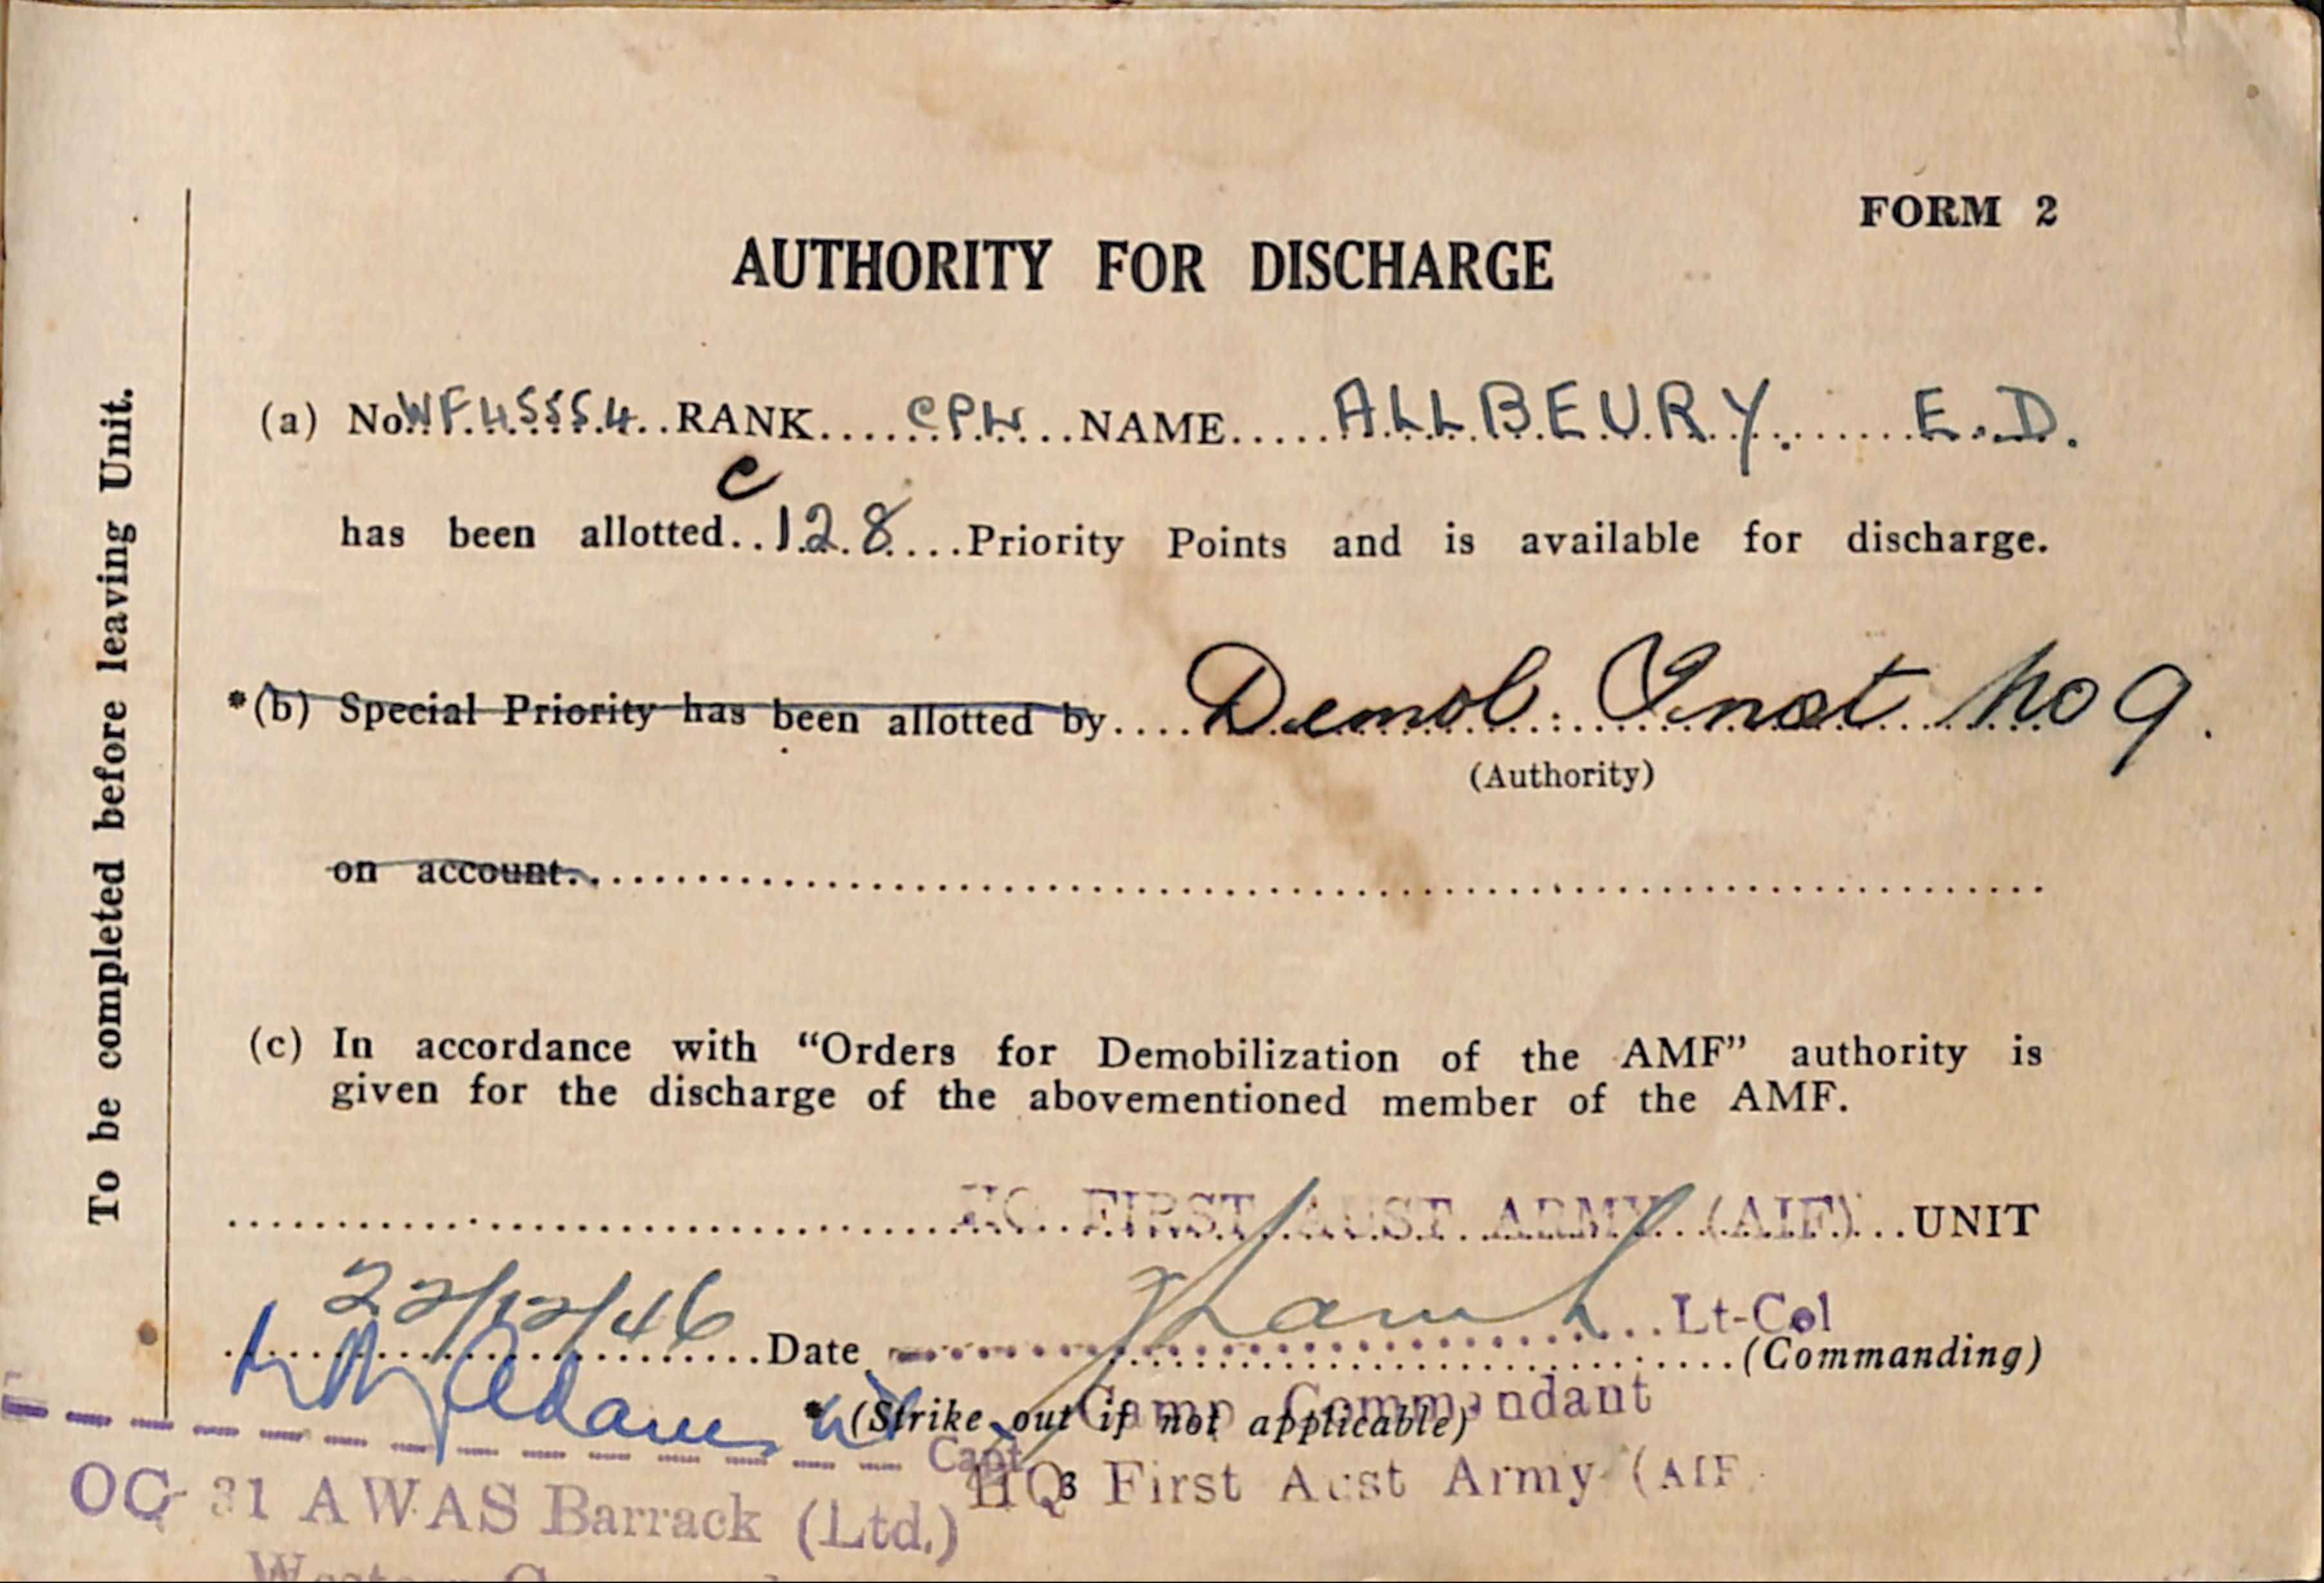 FORM 2
AUTHORITY FOR DISCHARGE
To be completed before leaving Unit.
(a) No. WF.45554 RANK CPL NAME ALLBEURY. E.D.
C
has been allotted 128 Priority Points and is available for discharge.
*(b) Special Priority has been allotted by Demob: Inst No 9.
(Authority)
on account
(c) In accordance with “Orders for Demobilization of the AMF” authority is
given for the discharge of the abovementioned member of the AMF.
HQ FIRST AUST ARMY (AIF) UNIT
Lt-Col
22/12/46 Date (Commanding)
* (Strike out if not applicable)
Camp Commandant
Capt
HQ First Aust Army (AIF
3
OC 31 AWAS Barrack (Ltd.)